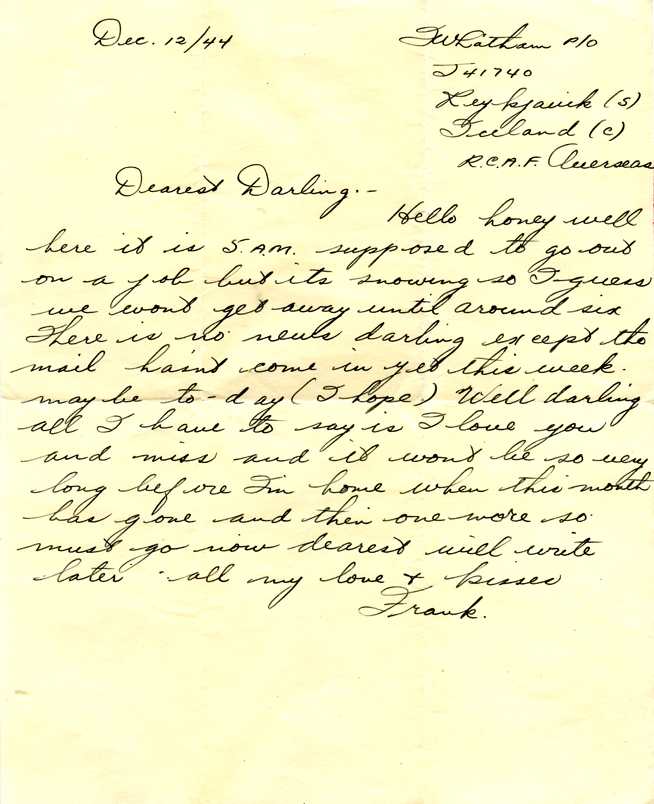 Dec. 12/44
F W Latham P/O
J41740
Reykjavik (S)
Iceland (C)
R.C.A.F. Overseas
Dearest Darling.-
Hello honey well
here it is 5. A.M. supposed to go out
on a job but its snowing so I guess
we wont get away until around six
There is no news darling except the
mail hasnt come in yet this week.
maybe to-day (I hope) Well darling
all I have to say is I love you
and miss and it wont be so very
long before Im home when this month
has gone and then one more so
must go now dearest will write
later all my love + kisses
Frank.